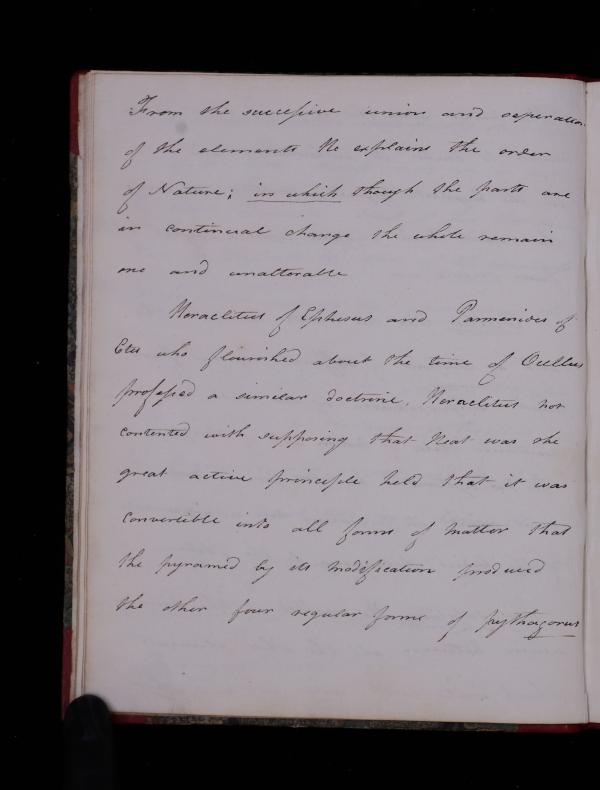 From the successive union and separation
of the elements He explains the order
of Nature; in which though the parts are
in continual change the whole remain
one and unalterable
Heraclitus of Ephesus and Parmenides of
Elis who flourished about the time of Ocellus
professed a similar doctrine. Heraclitus not
contented with supposing that Heat was the
great active principle held that it was
convertible into all forms of matter that
the pyramed by its modification produced
the other four regular forms of pythagorus